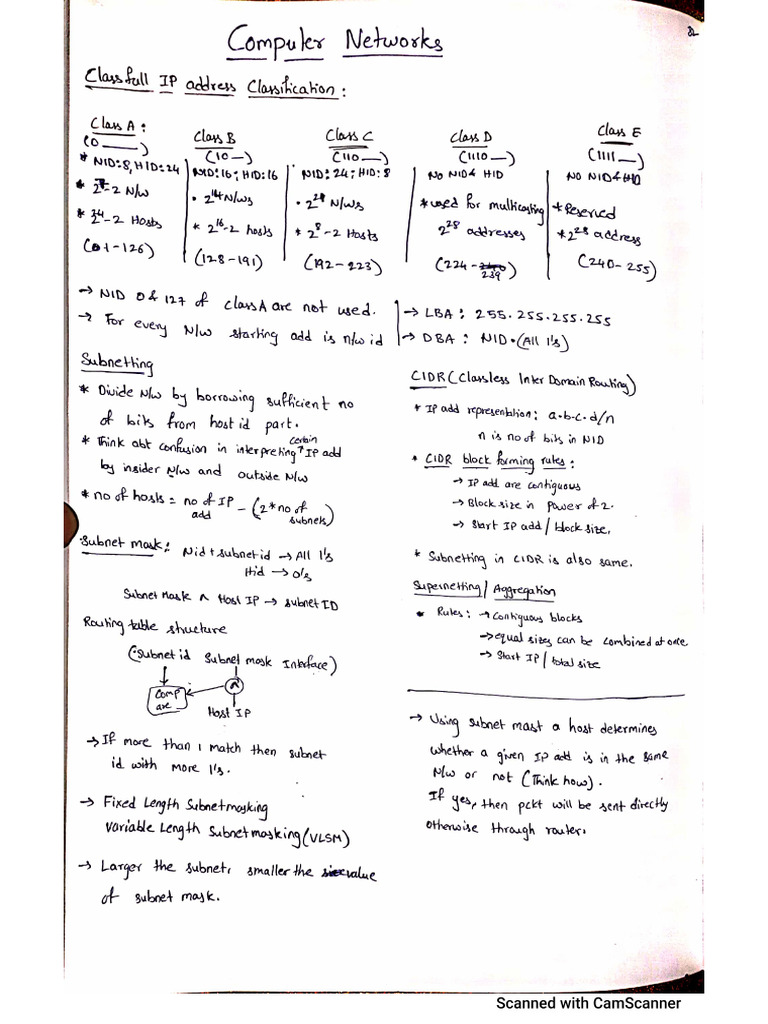 82
Computer Networks
Classfull IP address Classification:
Class A:
(0____)
* NID:8, HID:24
* 2^7-2 N/w
* 2^24-2 Hosts
(01-126)
Class B
(10__)
NID:16; HID:16
• 2^14 N/ws
* 2^16-2 hosts
(128-191)
Class C
(110__)
NID: 24; HID: 8
• 2^21 N/ws
* 2^8-2 Hosts
(192-223)
Class D
(1110__)
No NID & HID
* used for multicasting
2^28 addresses
(224-239)
Class E
(1111__)
No NID & HID
* Reserved
* 2^28 address
(240-255)
→ NID 0 & 127 of class A are not used.
→ For every N/w starting add is n/w id
→ LBA: 255.255.255.255
→ DBA: NID.(All 1's)
Subnetting
* Divide N/w by borrowing sufficient no
of bits from host id part.
* Think abt confusion in interpreting certain IP add
by insider N/w and outside N/w
* no of hosts = no of IP add - (2*no of subnets)
Subnet mask: Nid + subnet id → All 1's
Hid → 0's
Subnet Mask ∧ Host IP → subnet ID
Routing table structure
(Subnet id Subnet mask Interface)
Comp
are
∧
Host IP
→ If more than 1 match then subnet
id with more 1's.
→ Fixed Length Subnetmasking
Variable Length Subnetmasking (VLSM)
→ Larger the subnet, smaller the value
of subnet mask.
CIDR (Classless Inter Domain Routing)
* IP add representation: a.b.c.d/n
n is no of bits in NID
* CIDR block forming rules:
→ IP add are contiguous
→ Block size in power of 2.
→ Start IP add / block size.
* Subnetting in CIDR is also same.
Supernetting / Aggregation
* Rules: → Contiguous blocks
→ equal sizes can be combined at once
→ Start IP / total size
→ Using subnet mast a host determines
whether a given IP add is in the same
N/w or not (Think how).
If yes, then pckt will be sent directly
otherwise through router.
Scanned with CamScanner